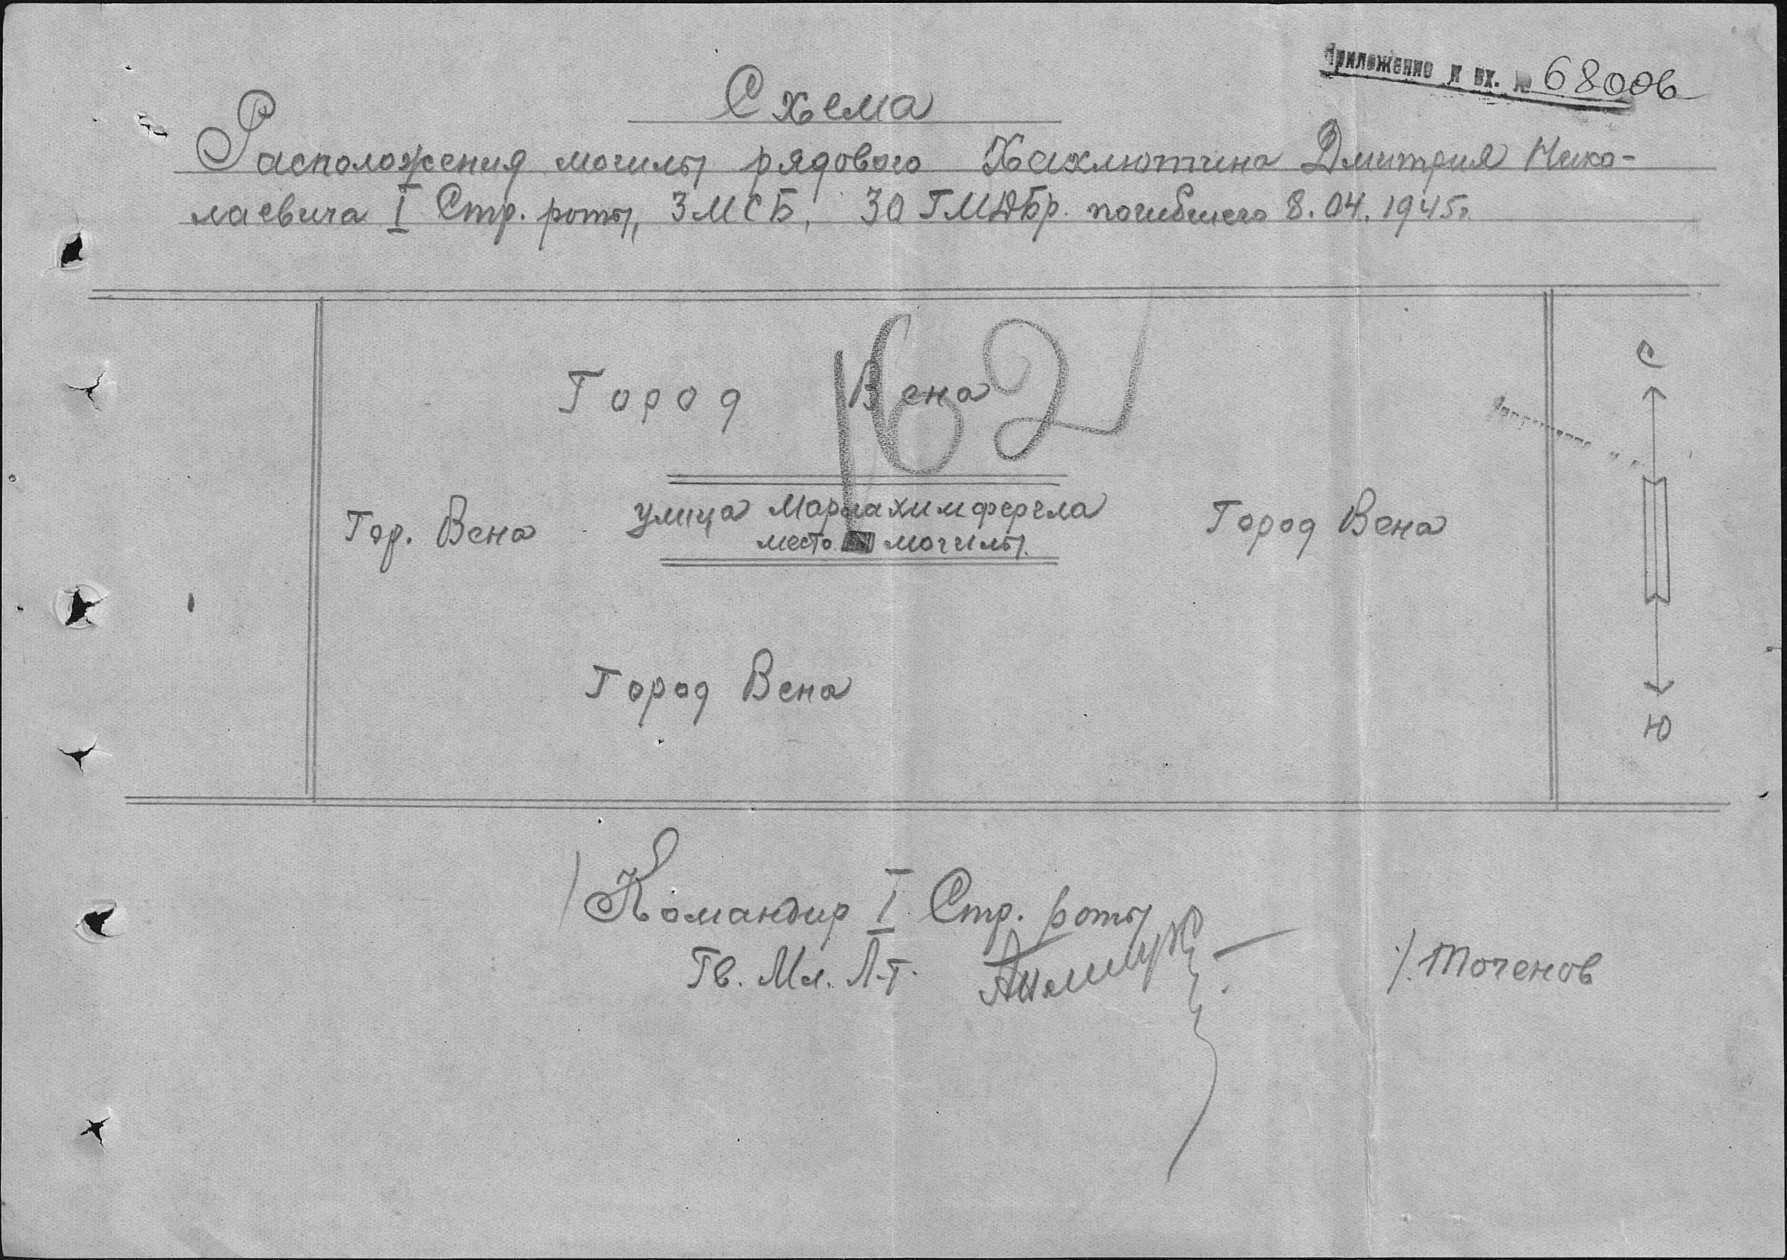 Приложение к вх. № 68006
Схема
Расположения могилы рядового Хахлютина Дмитрия Нико-
лаевича I Стр. роты, 3 МСБ, 30 ГМДБр. погибшего 8.04.1945г.
162
Город Вена
С
улица Мариахимфергла
Гор. Вена
место могилы.
Город Вена
Город Вена
Ю
Командир I Стр. роты
Гв. Мл. Л-т.
/. Точенов